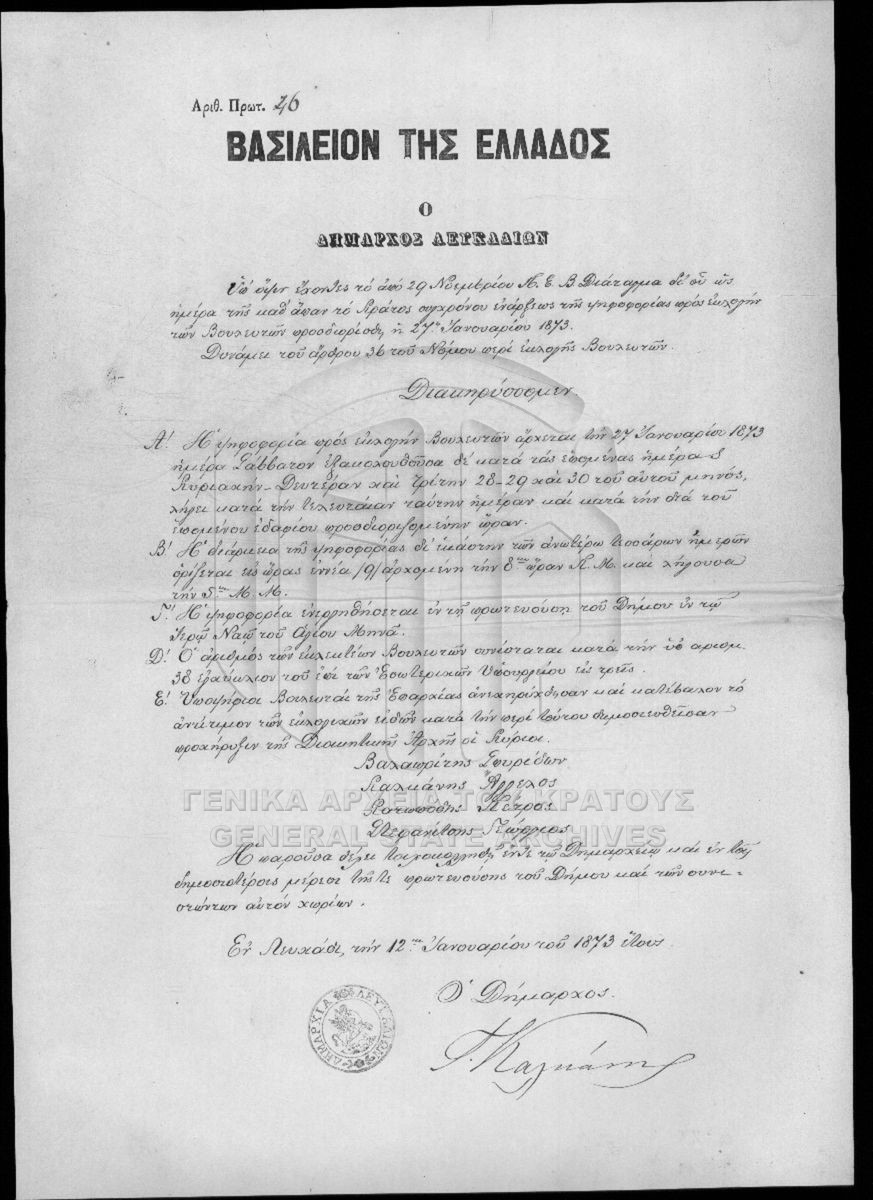 Αριθ. Πρωτ. 26
ΒΑΣΙΛΕΙΟΝ ΤΗΣ ΕΛΛΑΔΟΣ
Ο
ΔΗΜΑΡΧΟΣ ΛΕΥΚΑΔΙΩΝ
Ὑπ' ὄψιν ἔχοντες τὸ ἀπὸ 29 Νοεμβρίου Π. Ε. Β. Διάταγμα δι' οὗ ὡς
ἡμέρα τῆς καθ' ἅπαν τὸ Κράτος συγχρόνου ἐνάρξεως τῆς ψηφοφορίας πρὸς ἐκλογὴν
τῶν Βουλευτῶν προσδιωρίσθη ἡ 27η Ἰανουαρίου 1873.
Δυνάμει τοῦ ἄρθρου 36 τοῦ Νόμου περὶ ἐκλογῆς Βουλευτῶν.
Διακηρύσσομεν
Α! Ἡ ψηφοφορία πρὸς ἐκλογὴν Βουλευτῶν ἄρχεται τὴν 27 Ἰανουαρίου 1873
ἡμέρα Σάββατον ἐπακολουθοῦσα δὲ κατὰ τὰς ἑπομένας ἡμέρας
Κυριακὴν - Δευτέραν καὶ Τρίτην 28-29 καὶ 30 τοῦ αὐτοῦ μηνὸς,
λήγει κατὰ τὴν τελευταίαν ταύτην ἡμέραν καὶ κατὰ τὴν διὰ τοῦ
ἑπομένου ἐδαφίου προσδιοριζομένην ὥραν.
Β! Ἡ διάρκεια τῆς ψηφοφορίας δι' ἑκάστην τῶν ἀνωτέρω τεσσάρων ἡμερῶν
ὁρίζεται εἰς ὥρας ἐννέα /9/ ἀρχομένη τὴν 8ην ὥραν Π. Μ. καὶ λήγουσα
τὴν 5ην Μ. Μ.
Γ! Ἡ ψηφοφορία ἐνεργηθήσεται ἐν τῇ πρωτευούσῃ τοῦ Δήμου ἐν τῷ
Ἱερῷ Ναῷ τοῦ Ἁγίου Μηνᾶ.
Δ! Ὁ ἀριθμὸς τῶν ἐκλεκτέων Βουλευτῶν συνίσταται κατὰ τὴν ὑπ' ἀριθμ.
38 ἐγκύκλιον τοῦ ἐπὶ τῶν Ἐσωτερικῶν Ὑπουργείου εἰς τρεῖς.
Ε! Ὑποψήφιοι Βουλευταὶ τῆς Ἐπαρχίας ἀνεκηρύχθησαν καὶ κατέβαλον τὸ
ἀντίτιμον τῶν ἐκλογικῶν εἰδῶν κατὰ τὴν περὶ τούτου δημοσιευθεῖσαν
προκήρυξιν τῆς Διοικητικῆς Ἀρχῆς οἱ Κύριοι.
Βαλαωρίτης Σπυρίδων
Καλκάνης Ἄγγελος
Κατωπόδης Πέτρος
Στεφανίτσης Γεώργιος
Ἡ παροῦσα θέλει τοιχοκολληθῆ ἔν τε τῷ Δημαρχείῳ καὶ ἐν τοῖς
δημοσιοτέροις μέρεσι τῆς τε πρωτευούσης τοῦ Δήμου καὶ τῶν συνι-
στώντων αὐτὸν χωρίων.
Ἐν Λευκάδι, τὴν 12ην Ἰανουαρίου τοῦ 1873 ἔτους.
Ὁ Δήμαρχος.
Καλκάνης
ΔΗΜΑΡΧΙΑ ΛΕΥΚΑΔΙΩΝ
ΓΕΝΙΚΑ ΑΡΧΕΙΑ ΤΟΥ ΚΡΑΤΟΥΣ
GENERAL STATE ARCHIVES